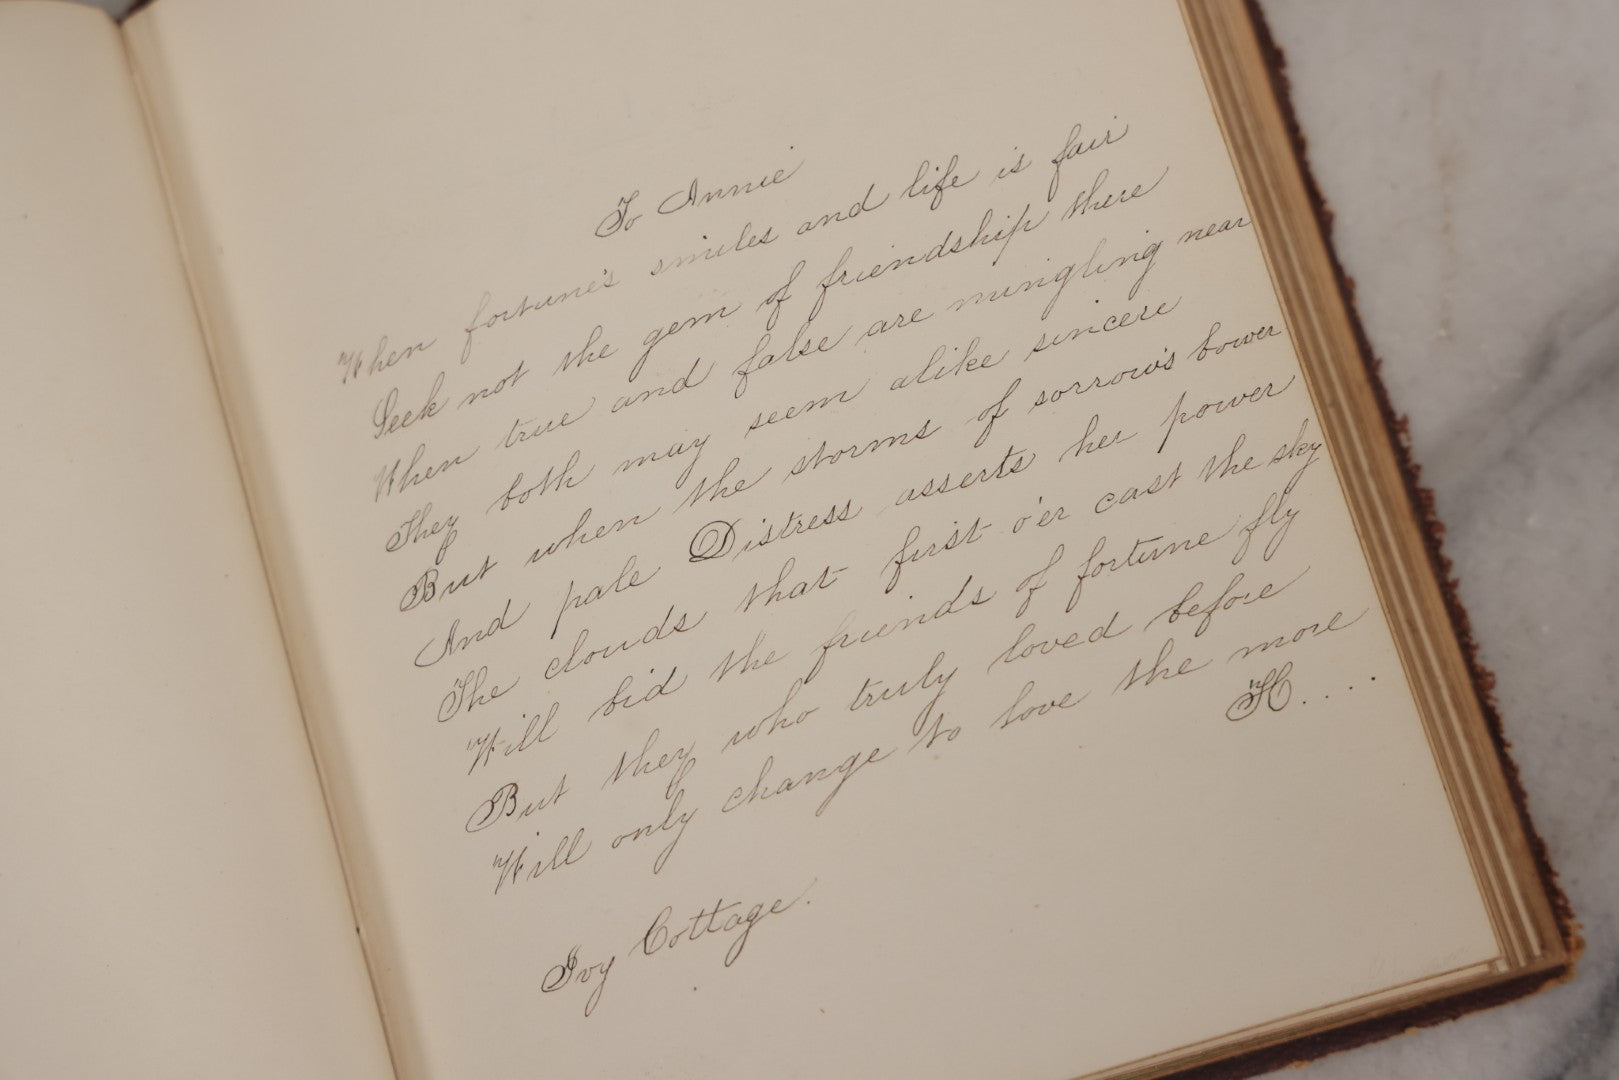 To Annie
When fortune's smiles and life is fair
Seek not the gem of friendship there
When true and false are mingling near
They both may seem alike sincere
But when the storms of sorrow's bower
And pale Distress asserts her power
The clouds that first o'er cast the sky
Will bid the friends of fortune fly
But they who truly loved before
Will only change to love the more
H....
Ivy Cottage.